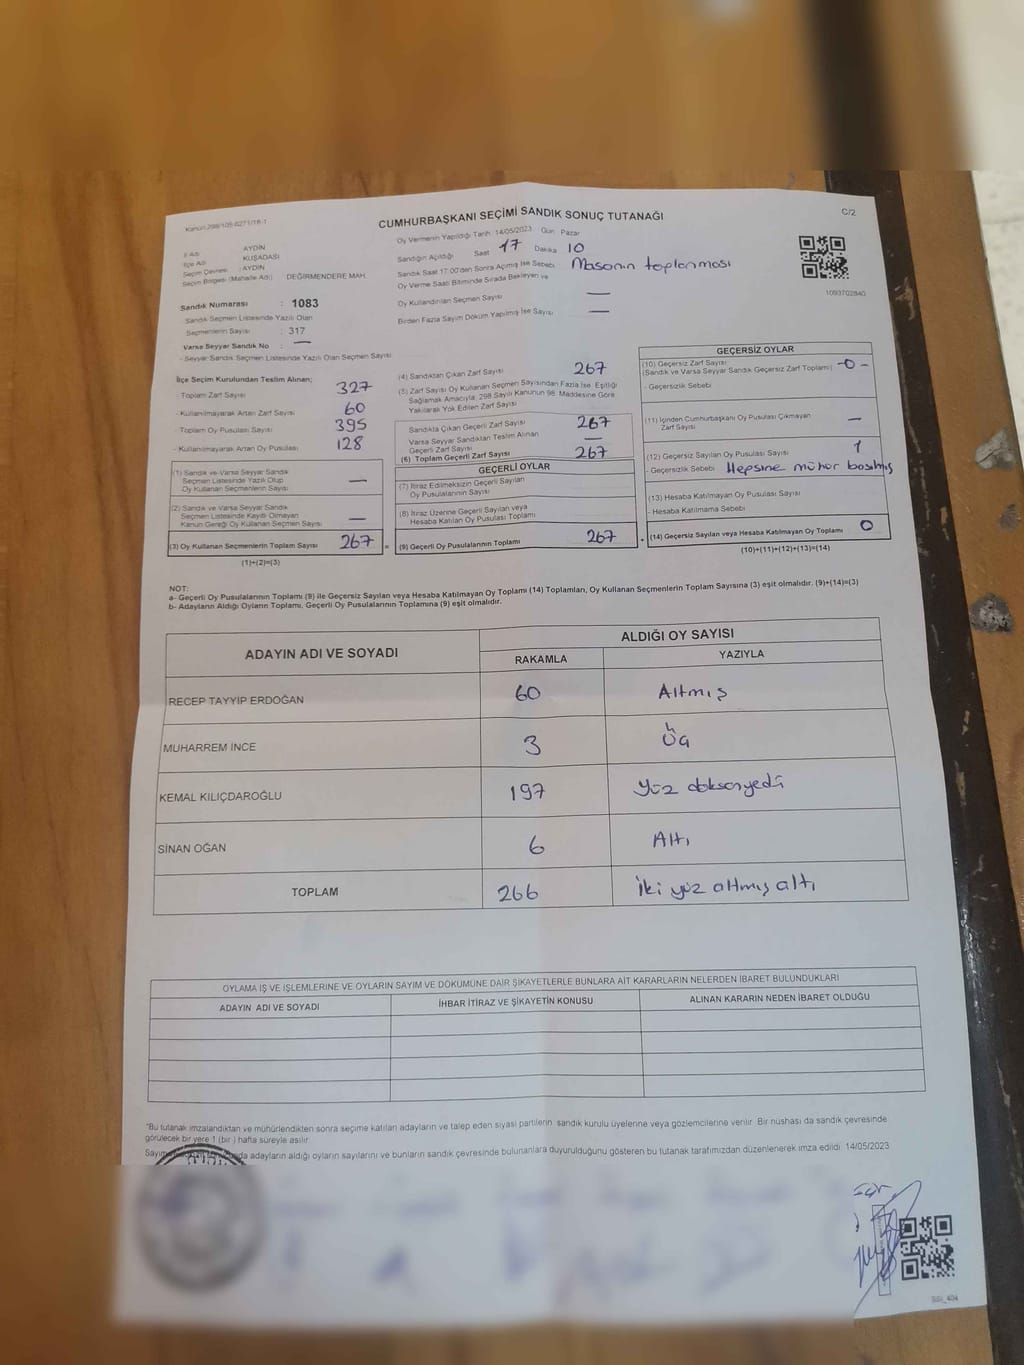 Kanun:298/105-6271/16-1
CUMHURBAŞKANI SEÇİMİ SANDIK SONUÇ TUTANAĞI
C/2
İl Adı : AYDIN
İlçe Adı : KUŞADASI
Seçim Çevresi : AYDIN
Seçim Bölgesi (Mahalle Adı) : DEĞİRMENDERE MAH.
Sandık Numarası : 1083
Sandık Seçmen Listesinde Yazılı Olan
Seçmenlerin Sayısı : 317
Varsa Seyyar Sandık No : —
- Seyyar Sandık Seçmen Listesinde Yazılı Olan Seçmen Sayısı
Oy Vermenin Yapıldığı Tarih: 14/05/2023 Gün: Pazar
Sandığın Açıldığı Saat 17 Dakika 10
Sandık Saat 17:00'den Sonra Açılmış İse Sebebi Masanın toplanması
Oy Verme Saati Bitiminde Sırada Bekleyen ve
Oy Kullandırılan Seçmen Sayısı —
Birden Fazla Sayım Döküm Yapılmış İse Sayısı —
1093702840
İlçe Seçim Kurulundan Teslim Alınan;
- Toplam Zarf Sayısı 327
- Kullanılmayarak Artan Zarf Sayısı 60
- Toplam Oy Pusulası Sayısı 395
- Kullanılmayarak Artan Oy Pusulası 128
(1) Sandık ve Varsa Seyyar Sandık
Seçmen Listesinde Yazılı Olup
Oy Kullanan Seçmenlerin Sayısı —
(2) Sandık ve Varsa Seyyar Sandık
Seçmen Listesinde Kayıtlı Olmayan
Kanun Gereği Oy Kullanan Seçmen Sayısı —
(3) Oy Kullanan Seçmenlerin Toplam Sayısı 267 =
(1)+(2)=(3)
(4) Sandıktan Çıkan Zarf Sayısı 267
(5) Zarf Sayısı Oy Kullanan Seçmen Sayısından Fazla İse, Eşitliği
Sağlamak Amacıyla, 298 Sayılı Kanunun 98. Maddesine Göre
Yakılarak Yok Edilen Zarf Sayısı
Sandıkta Çıkan Geçerli Zarf Sayısı 267
Varsa Seyyar Sandıktan Teslim Alınan
Geçerli Zarf Sayısı —
(6) Toplam Geçerli Zarf Sayısı 267
GEÇERLİ OYLAR
(7) İtiraz Edilmeksizin Geçerli Sayılan
Oy Pusulalarının Sayısı
(8) İtiraz Üzerine Geçerli Sayılan veya
Hesaba Katılan Oy Pusulası Toplamı
(9) Geçerli Oy Pusulalarının Toplamı 267 +
GEÇERSİZ OYLAR
(10) Geçersiz Zarf Sayısı
(Sandık ve Varsa Seyyar Sandık Geçersiz Zarf Toplamı) -0-
- Geçersizlik Sebebi
(11) İçinden Cumhurbaşkanı Oy Pusulası Çıkmayan
Zarf Sayısı —
(12) Geçersiz Sayılan Oy Pusulası Sayısı 1
- Geçersizlik Sebebi Hepsine mühür basılmış
(13) Hesaba Katılmayan Oy Pusulası Sayısı
- Hesaba Katılmama Sebebi
(14) Geçersiz Sayılan veya Hesaba Katılmayan Oy Toplamı 0
(10)+(11)+(12)+(13)=(14)
NOT:
a- Geçerli Oy Pusulalarının Toplamı (9) ile Geçersiz Sayılan veya Hesaba Katılmayan Oy Toplamı (14) Toplamları, Oy Kullanan Seçmenlerin Toplam Sayısına (3) eşit olmalıdır. (9)+(14)=(3)
b- Adayların Aldığı Oyların Toplamı, Geçerli Oy Pusulalarının Toplamına (9) eşit olmalıdır.
ADAYIN ADI VE SOYADI
ALDIĞI OY SAYISI
RAKAMLA YAZIYLA
RECEP TAYYİP ERDOĞAN 60 Altmış
MUHARREM İNCE 3 Üç
KEMAL KILIÇDAROĞLU 197 Yüz doksanyedi
SİNAN OĞAN 6 Altı
TOPLAM 266 İki yüz altmış altı
OYLAMA İŞ VE İŞLEMLERİNE VE OYLARIN SAYIM VE DÖKÜMÜNE DAİR ŞİKAYETLERLE BUNLARA AİT KARARLARIN NELERDEN İBARET BULUNDUKLARI
ADAYIN ADI VE SOYADI İHBAR İTİRAZ VE ŞİKAYETİN KONUSU ALINAN KARARIN NEDEN İBARET OLDUĞU
*Bu tutanak imzalandıktan ve mühürlendikten sonra seçime katılan adayların ve talep eden siyasi partilerin sandık kurulu üyelerine veya gözlemcilerine verilir. Bir nüshası da sandık çevresinde
görülecek bir yere 1 (bir ) hafta süreyle asılır.
adayların aldığı oyların sayılarını ve bunların sandık çevresinde bulunanlara duyurulduğunu gösteren bu tutanak tarafımızdan düzenlenerek imza edildi. 14/05/2023